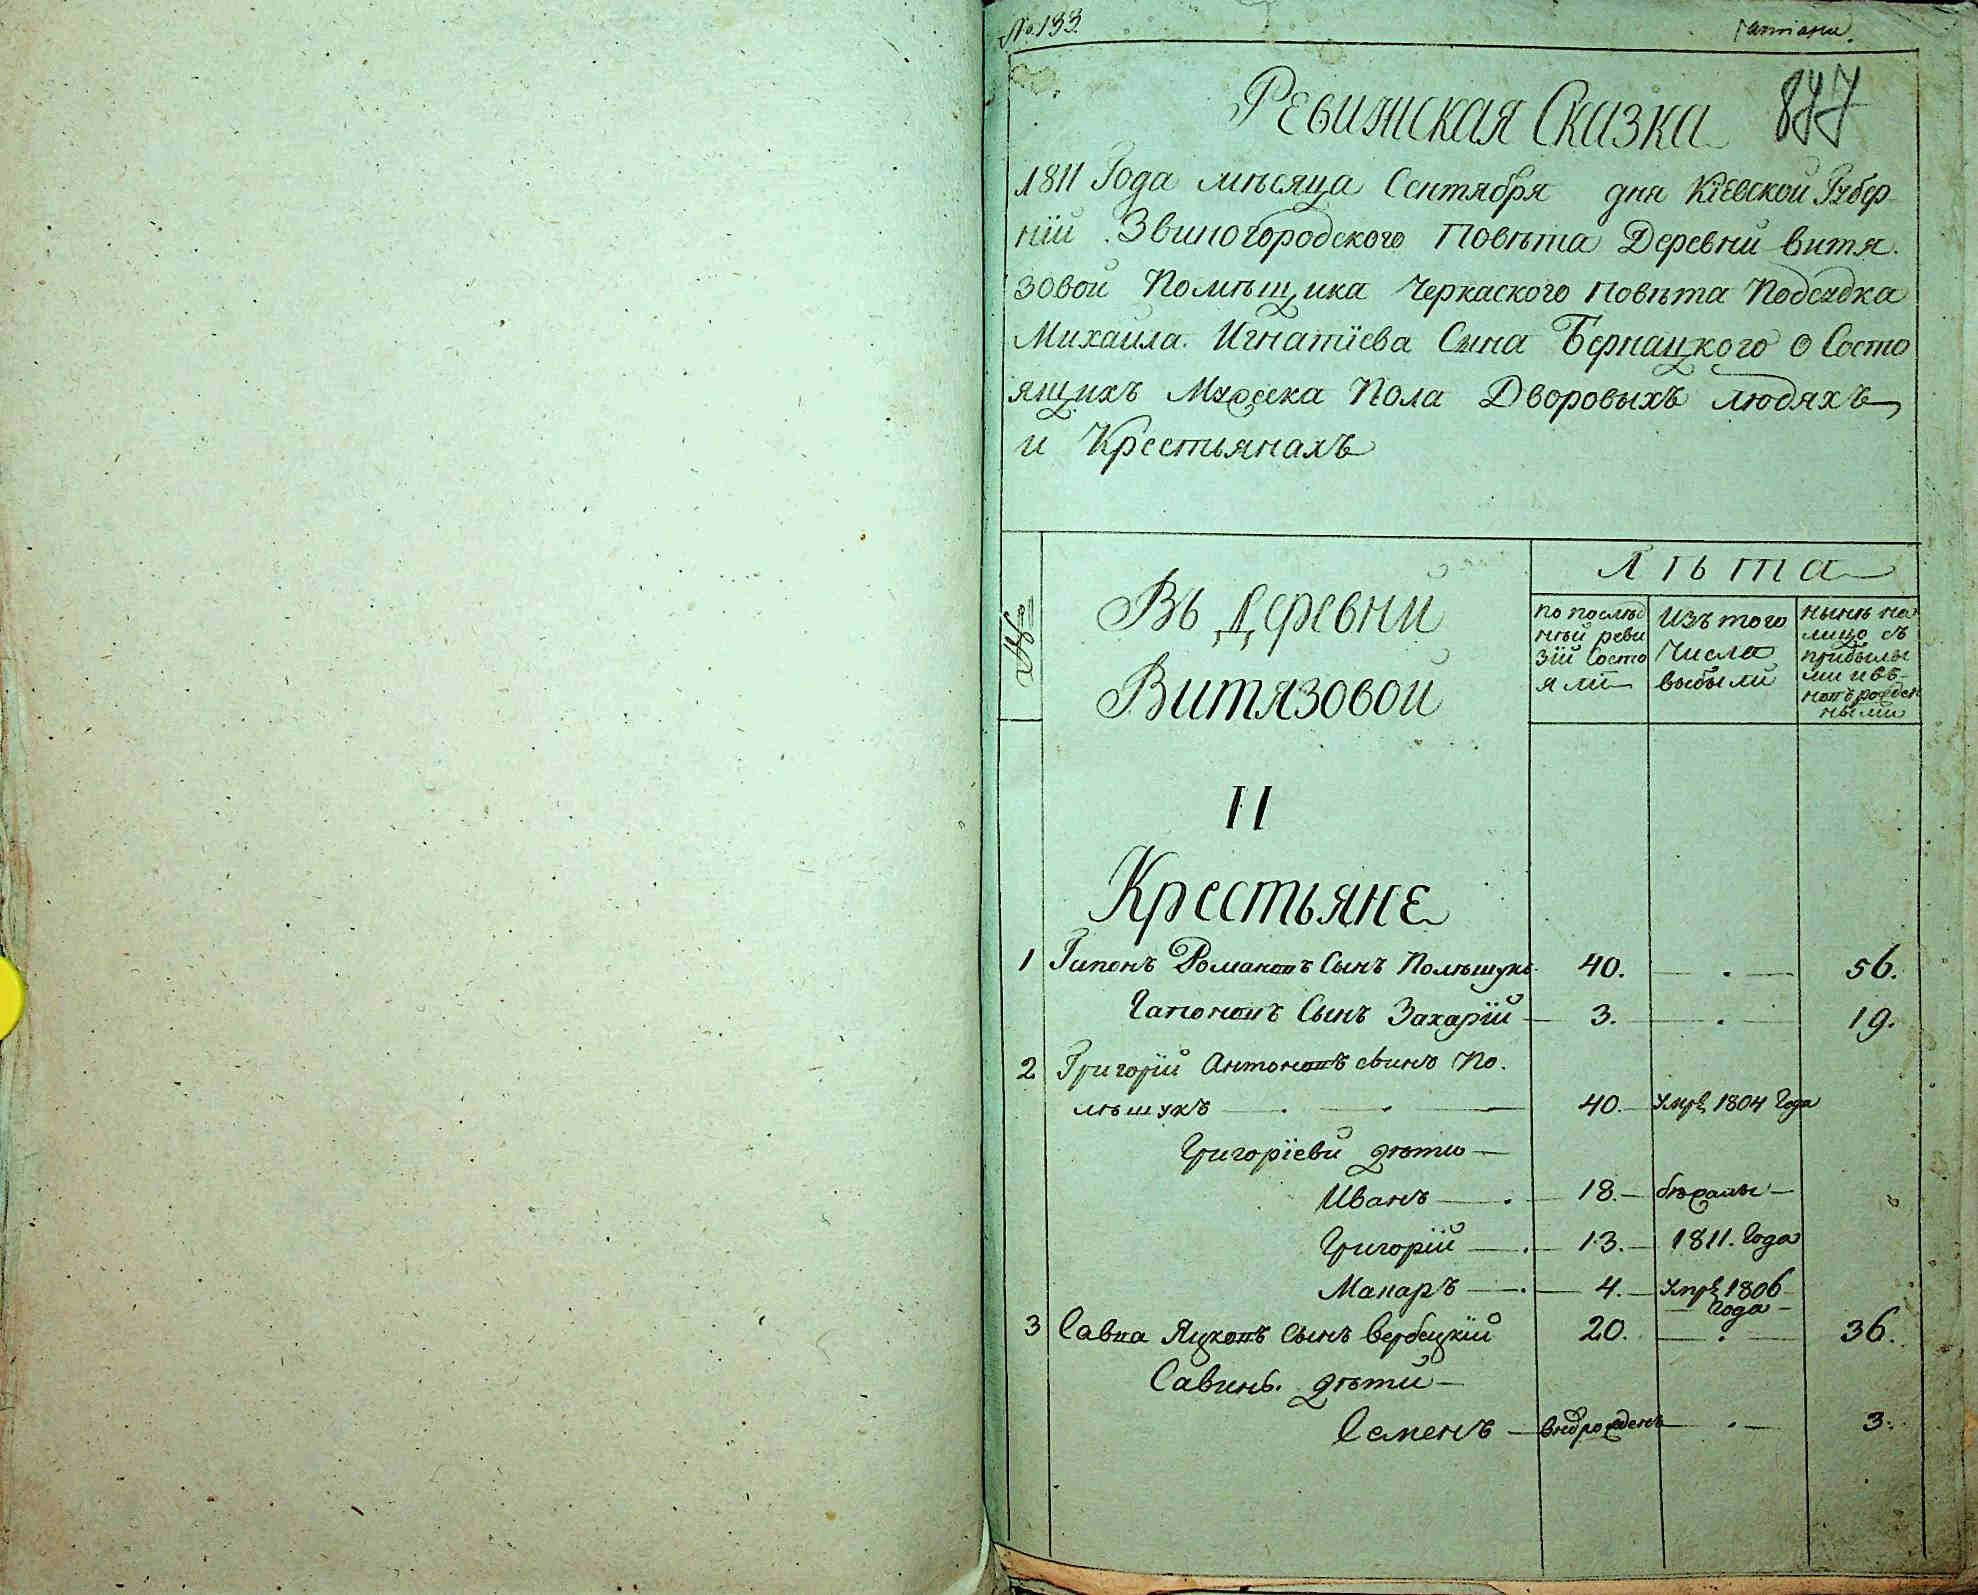 № 133.
877
Ревижская Сказка
1811 Года мѣсяца Сентября дня Кіевской Губер
ніи Звиногородского Повѣта Деревни Витя
зовой Помѣщика Черкаского Повѣта Подсудка
Михаила Игнатіева Сына Бернацкого о Состо
ящихъ Мужеска Пола Дворовыхъ людяхъ
и Крестьянахъ
№
Въ деревни
Витязовой
Лѣта
по послѣд
нѣй реви
зіи состо
яли
Изъ того
числа
выбыли
нынѣ на
лицо съ
прибылы
ми и въ
новъ рожден
ными
II
Крестьяне
1 Гапонъ Романовъ Сынъ Полѣшукъ 40. 56.
Гапоновъ Сынъ Захарій 3. 19.
2 Григорій Антоновъ сынъ По.
лѣшукъ 40. умре 1804 Года
Григоріеви дѣти
Иванъ 18. бѣжалы
Григорій 13. 1811. Года
Макаръ 4. умре 1806
Года
3 Савва Яцковъ сынъ Вербецкій 20. 36.
Савины дѣти
Семенъ внврожденъ 3.